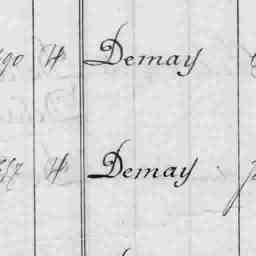 90 H Demay
57 H Demay